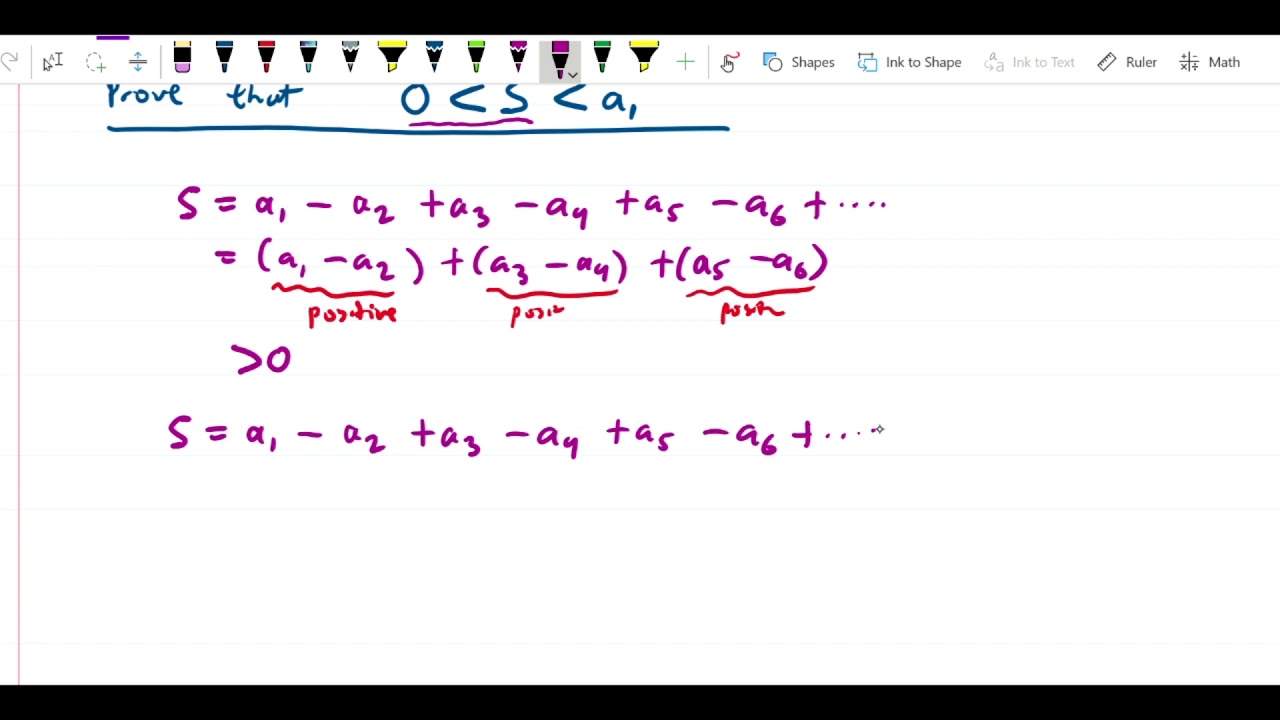 Shapes Ink to Shape Ink to Text Ruler Math
Prove that 0 < S < a₁
S = a₁ − a₂ + a₃ − a₄ + a₅ − a₆ + ....
= (a₁ − a₂) + (a₃ − a₄) + (a₅ − a₆)
positive
>0
S = a₁ − a₂ + a₃ − a₄ + a₅ − a₆ + ....